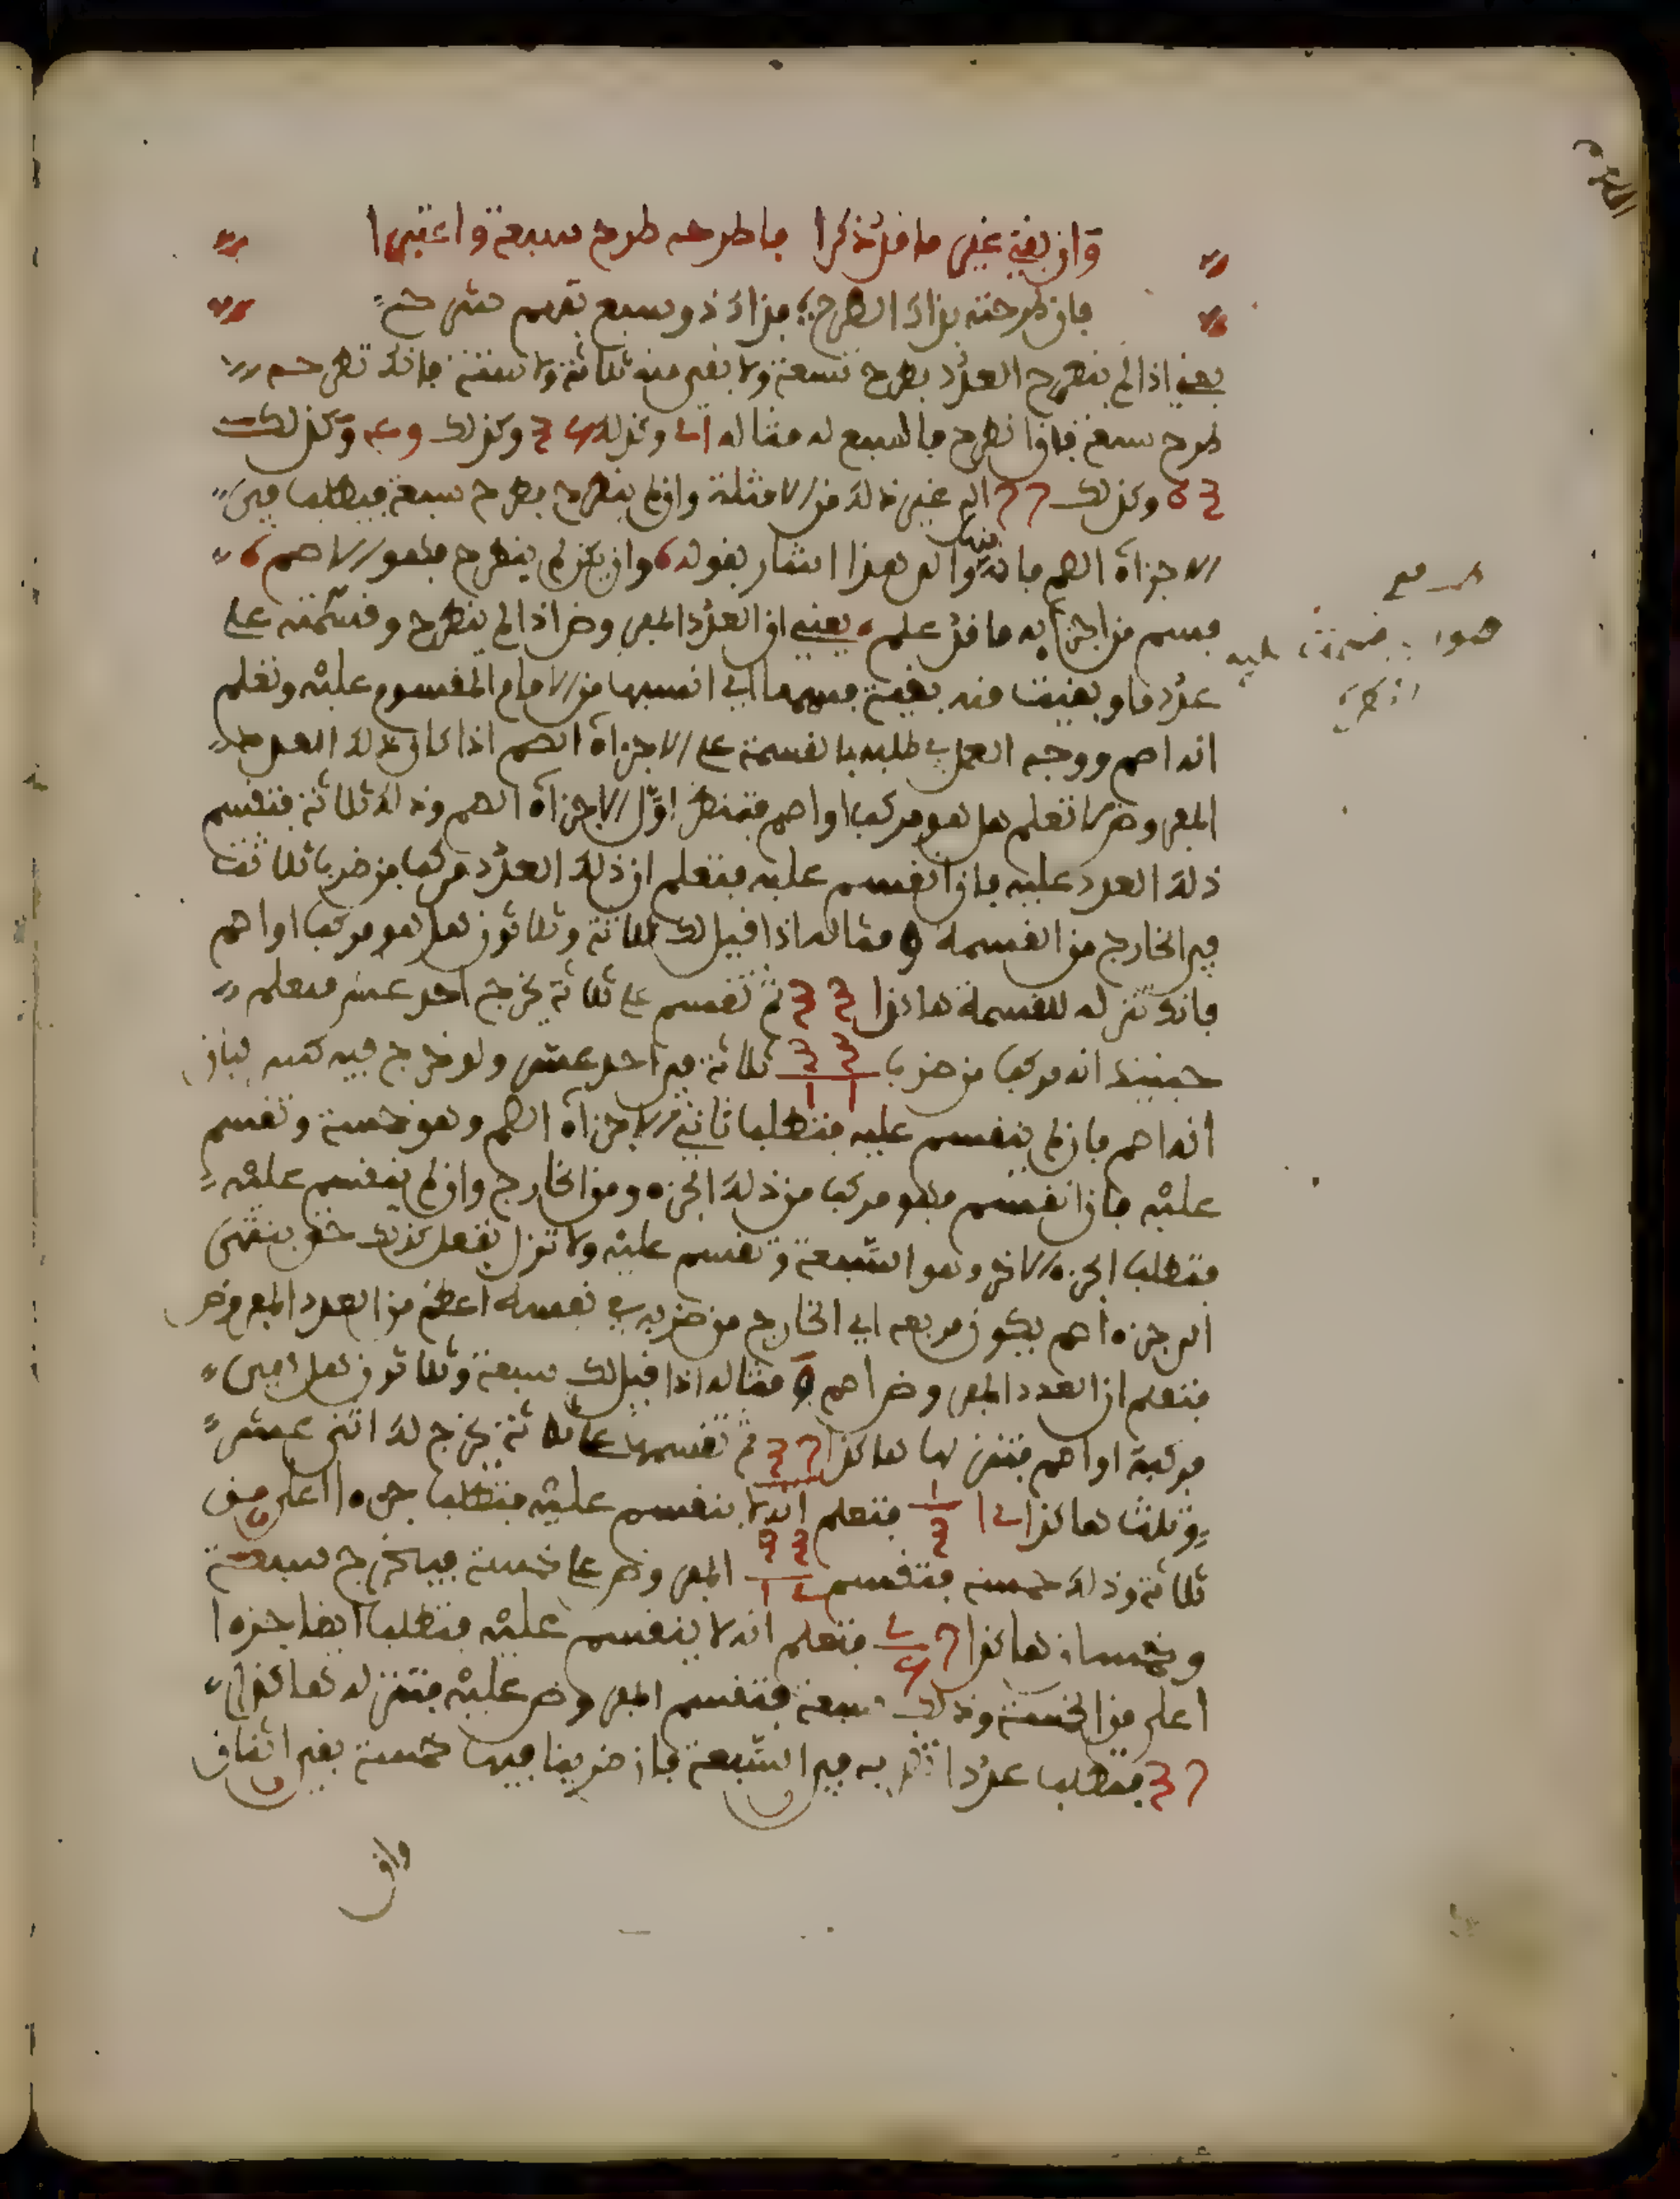 وان بقي غير ما قد ذكرا فاطرحه طرح سبعة واعتبرا
فان طرحته بذاك الطرح فذاك ذو سبع بغير شرح
يعني اذا لم ينطرح العدد بطرح تسعة ولا بقي منه ثلاثة ولا ستة فانك تطرحه
طرح سبعة فاذا انطرح فالسبع له مثاله 21 وكذلك وكذلك وكذلك
وكذلك 77 الى غير ذلك من الامثلة وان لم ينطرح بطرح سبعة فيطلب في
الاجزاء الصم فانه والى هذا اشار بقوله وان يكن لم ينطرح فهو الاصم
فسم من اجزايه ما قد علم يعني ان العدد المفروض اذا لم ينطرح وقسمته على
عدد ما وبقيت منه بقية فسمها اي انسبها من الامام المقسوم عليه وتعلم
انه اصم ووجه العمل في طلبه بالقسمة على الاجزاء الصم اذا كان ذلك العدد
المفروض لا تعلم هل هو مركب او اصم فتنظر اول الاجزاء الصم وذلك ثلاثة فتقسم
ذلك العدد عليه فان انقسم عليه فتعلم ان ذلك العدد مركب من ضرب ثلاثة
في الخارج من القسمة ومثاله اذا قيل لك ثلاثة وثلاثون هل هو مركب او اصم
فانك تنزله للقسمة هاكذا 33 ثم تقسم على ثلاثة يخرج احد عشر فتعلم
حينيذ انه مركب من ضرب 33 11 ثلاثة في احد عشر ولو خرج فيه كسر لبان
انه اصم فان لم ينقسم عليه فتطلب ثاني الاجزاء الصم وهو خمسة وتقسم
عليه فان انقسم فهو مركب من ذلك الجزء ومن الخارج وان لم ينقسم عليه
فتطلب الجزء الاخر وهو السبعة وتقسم عليه ولا تزل تفعل كذلك حتى ينتهي
الى جزء اصم يكون مربعه اي الخارج من ضربه في نفسه اعظم من العدد المفروض
فتعلم ان العدد المفروض اصم مثاله اذا قيل لك سبعة وثلاثون هل هي
مركبة او اصم فتنزلها هاكذا 37 ثم تقسمها على ثلاثة يخرج لك اثنى عشر
وثلث هاكذا 12 1 3 فتعلم انه لا ينقسم عليه فتطلب جزءا اعلى من
ثلاثة وذلك خمسة فتقسم المفروض على خمسة فيخرج سبعة
وخمسان هاكذا 7 2 5 فتعلم انه لا ينقسم عليه فتطلب ايضا جزءا
اعلى من الخمسة وذلك سبعة فتقسم المفروض عليه فتنزله هاكذا
37 فتطلب عددا تضربه في السبعة فان ضربنا فيها خمسة بقي اثنان
وان